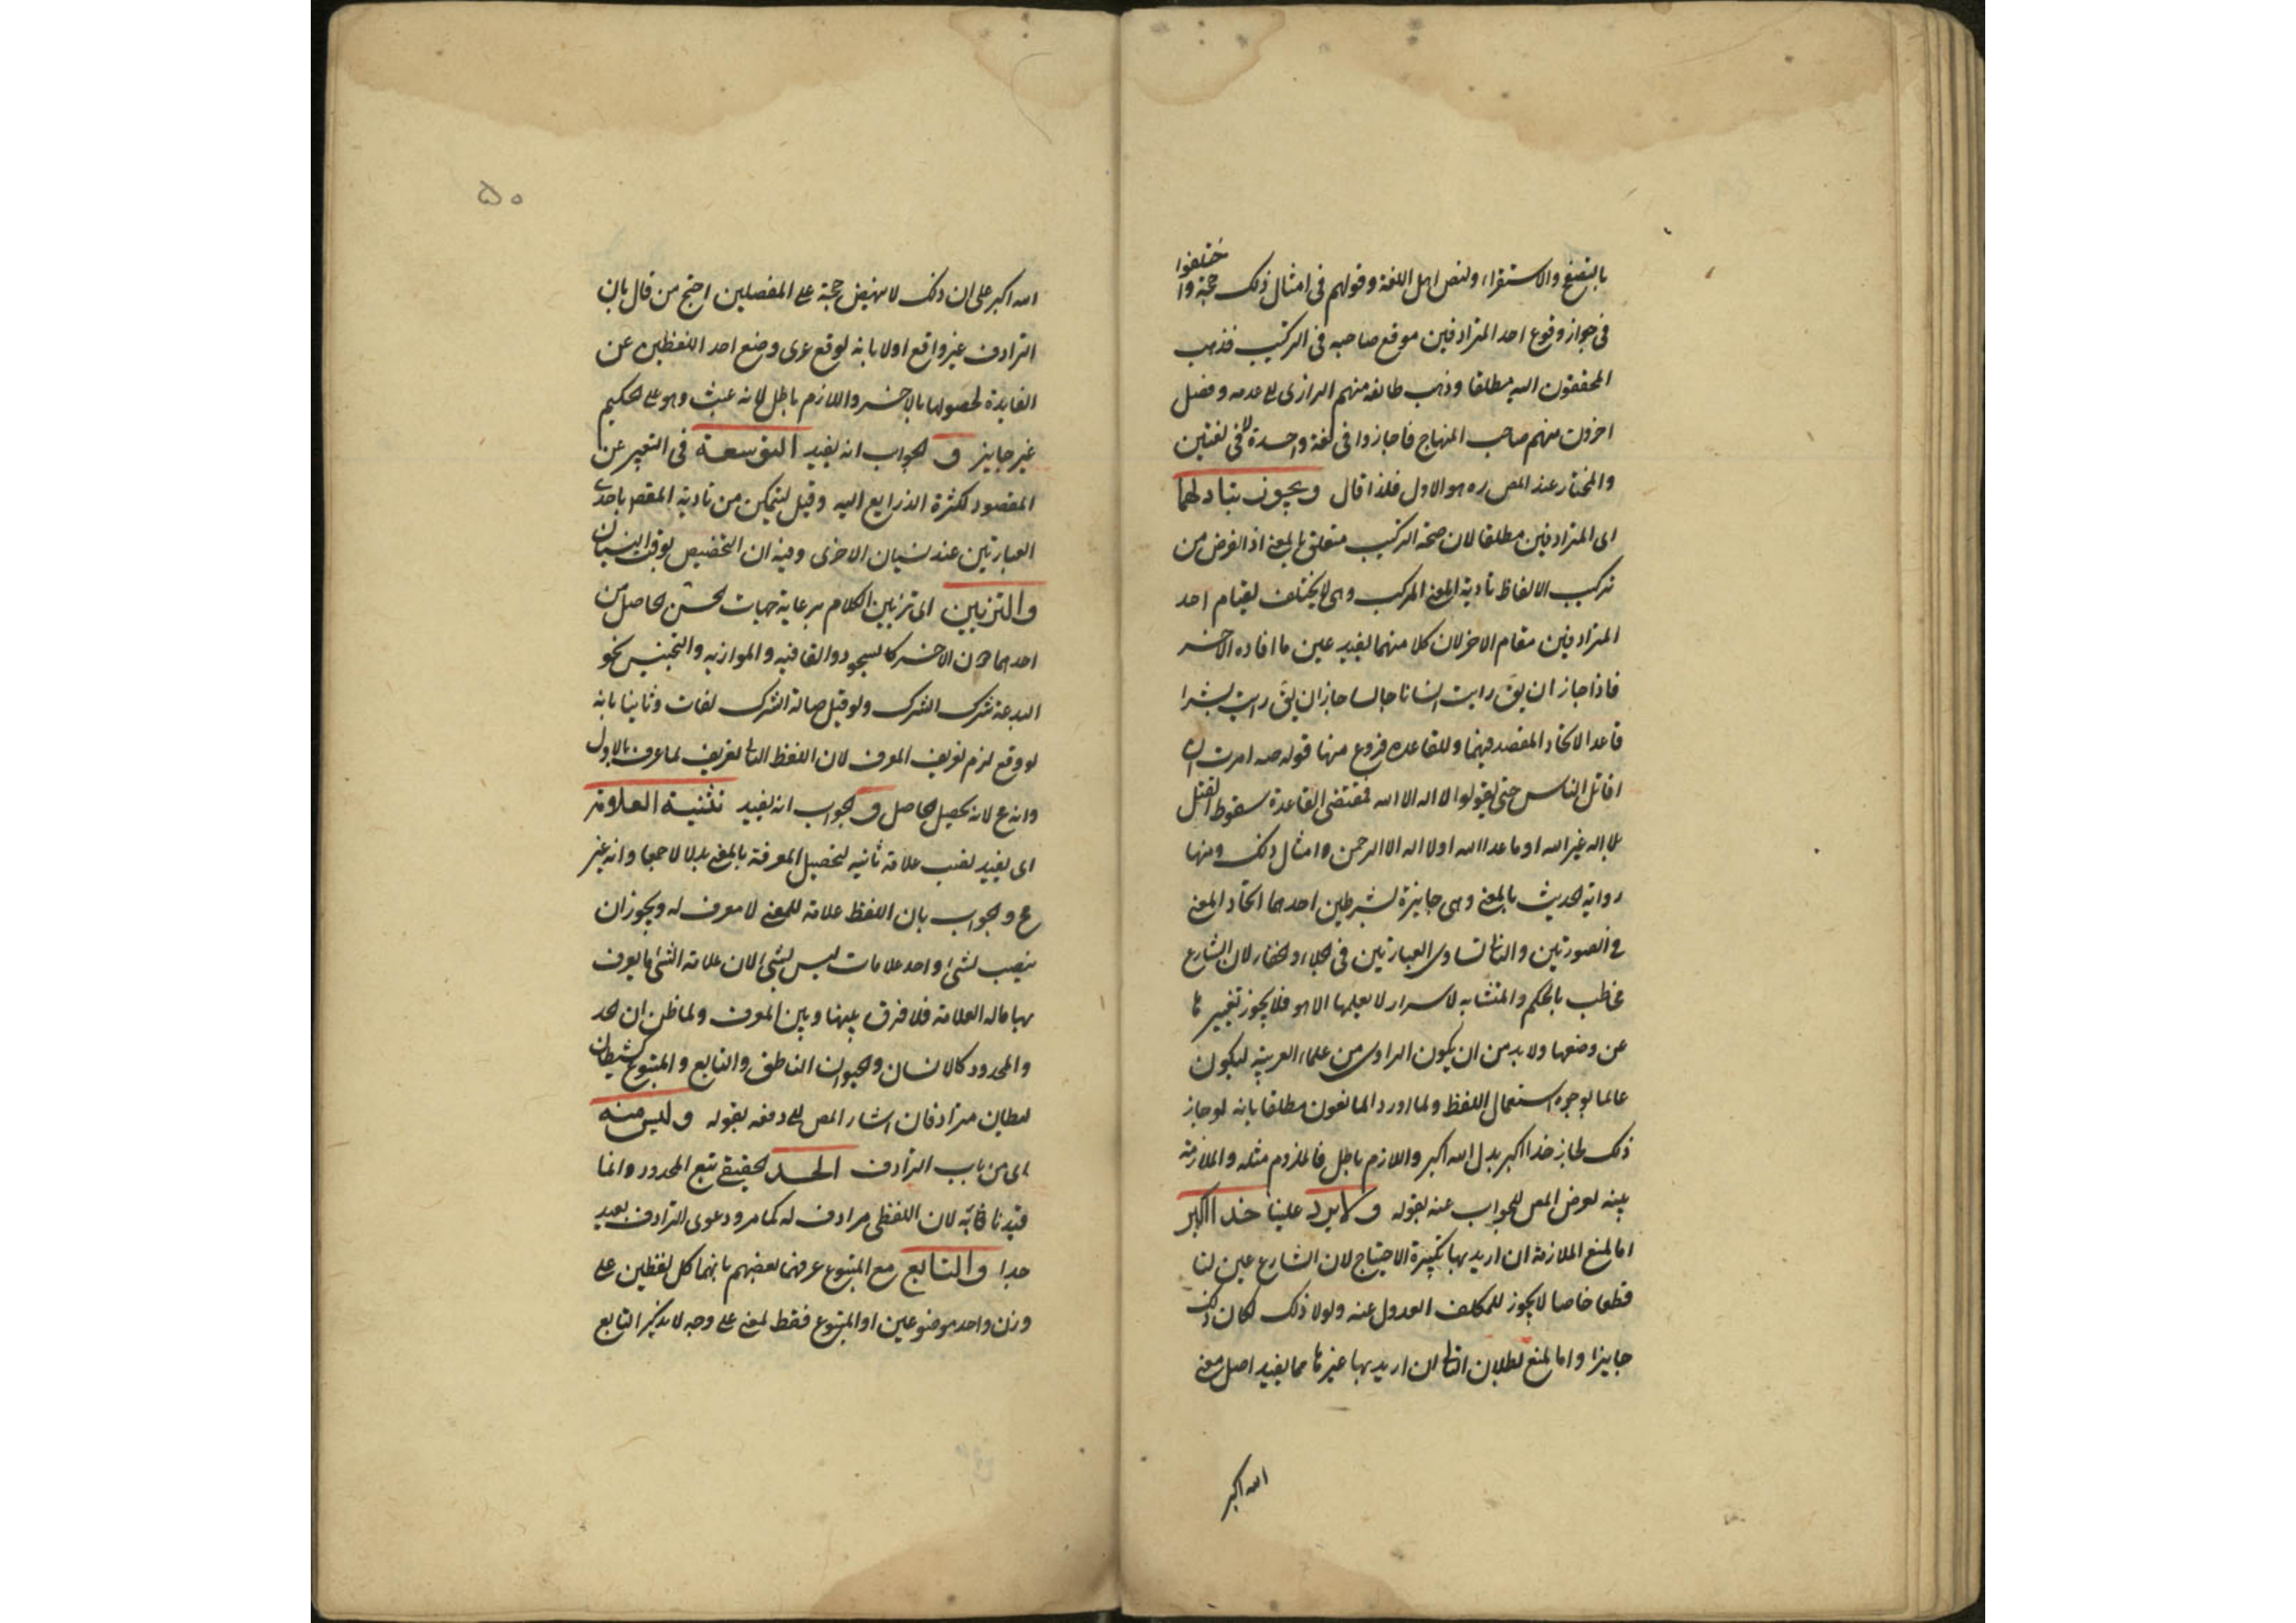 بالتصفح والاستقراء ولنص اهل اللغة وقولهم فى امثال ذلك حجة واختلفوا
فى جواز وقوع احد المترادفين موقع صاحبه فى التركيب فذهب
المحققون اليه مطلقا وذهب طائفه منهم الرازى الى عدمه وفصل
اخرون منهم صاحب المنهاج فاجازوا فى لغة واحدة لا فى لغتين
والمختار عند المص ره هو الاول فلذا قال ويجوز تبادلهما
اى المترادفين مطلقا لان صحة التركيب متعلق بالمعنے اذ الغرض من
تركيب الالفاظ تادية المعنے المركب وهى لا يختلف بقيام احد
المترادفين مقام الاخر لان كلا منهما يفيد عين ما افاده الاخر
فاذا جاز ان يق رايت انسانا جالسا جاز ان يق رايت بشرا
قاعدا لاتحاد المقصد فيهما وللقاعده فروع منها قوله صه امرت ان
اقاتل الناس حتى يقولوا لا اله الا الله فمقتضى القاعدة سقوط القتل
بلا اله غير الله او ما عدا الله او لا اله الا الرحمن وامثال ذلك ومنها
رواية الحديث بالمعنے وهى جايزة بشرطين احدهما اتحاد المعنے
فى الصورتين والثانے تساوى العبارتين فى الجلاء والخفاء لان الشارع
مخاطب بالمحكم والمتشابه لاسرار لا يعلمها الا هو فلا يجوز تغييرها
عن وضعها ولا بد من ان يكون الراوى من علماء العربية ليكون
عالما بوجوه استعمال اللفظ ولما اورد المانعون مطلقا بانه لو جاز
ذلك لجاز خدا اكبر بدل الله اكبر واللازم باطل فالملزوم مثله والملازمة
بينه تعرض المص للجواب عنه بقوله ولا يرد علينا خدا اكبر
اما لمنع الملازمة ان اريد بها تكبيرة الاحتياج لان الشارع عين لنا
قطعا خاصا لا يجوز للمكلف العدول عنه ولولا ذلك لكان ذلك
جايزا واما لمنع بطلان الثانے ان اريد بها غيرها مما يفيد اصل معنے
الله اكبر
٥٠
الله اكبر على ان ذلك لا ينهض حجة على المفصلين احتج من قال بان
الترادف غير واقع اولا بانه لو وقع عرى وضع احد اللفظين عن
الفايدة لحصولها بالاخر واللازم باطل لانه عبث وهو على الحكيم
غير جايز و الجواب انه يفيد التوسعة فى التعبير عن
المقصود لكثرة الذرايع اليه وقيل ليتمكن من تادية المقصد باحدى
العبارتين عند نسيان الاخرى وفيه ان التخصيص بوقت النسيان
والتزيين اى تزيين الكلام برعاية جهات الحسن الحاصل من
احدهما دون الاخر كالسجود والقافيه والموازنه والتجنيس نحو
البدعة شرك الشرك ولو قيل حبالة الشرك لفات وثانيا بانه
لو وقع لزم تعريف المعرف لان اللفظ الثانے تعريف لما عرف بالاول
وانه ع لانه تحصيل الحاصل و الجواب انه يفيد تثنية العلامة
اى يفيد نصب علامة ثانيه لتحصيل المعرفة بالمعنے بدلا لا جمعا وانه غير
ع والجواب بان اللفظ علامة للمعنے لا معرف له ويجوز ان
ينصب لشئ واحد علامات ليس بشئ لان علامة الشئ ما يعرف
بها ماله العلامة فلا فرق بينها وبين المعرف ولما ظن ان الحد
والمحدود كالانسان والحيوان الناطق والتابع والمتبوع كشيطان
ليطان مترادفان اشار المص الى دفعه بقوله وليس منه
اى من باب الترادف الحد الحقيقے تبع المحدود وانما
قيدنا به لان اللفظى مرادف له كما مر ودعوى الترادف بعيد
جدا والتابع مع المتبوع عرفهما بعضهم بانهما كل لفظين على
وزن واحد موضوعين او المتبوع فقط لمعنے على وجه لا يذكر التابع